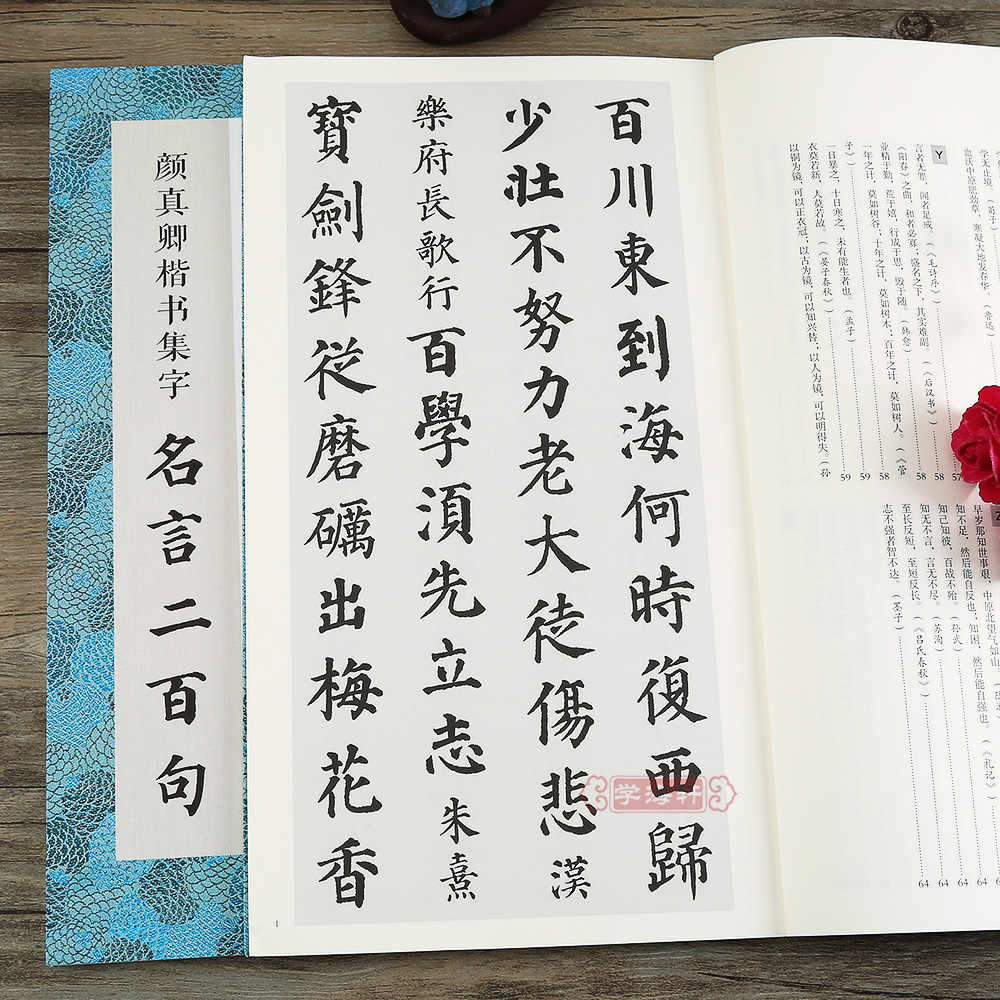 颜真卿楷书集字
名言二百句
百川東到海何時復西歸
少壯不努力老大徒傷悲 漢
樂府長歌行 百學須先立志 朱熹
寶劍鋒從磨礪出梅花香
1
学海轩
学无止境。（荀子）
血沃中原肥劲草，寒凝大地发春华。（鲁迅） 57
Y
言者无罪，闻者足戒。（《毛诗序》） 58
《阳春》之曲，和者必寡；盛名之下，其实难副。（《后汉书》） 58
业精于勤，荒于嬉，行成于思，毁于随。（韩愈） 58
一年之计，莫如树谷；十年之计，莫如树木；百年之计，莫如树人。（《管
子》） 58
一日暴之，十日寒之，未有能生者也。（孟子） 59
衣莫若新，人莫若故。（《晏子春秋》） 59
以铜为镜，可以正衣冠；以古为镜，可以知兴替；以人为镜，可以明得失。（孙
早岁那知世事艰，中原北望气如山
知不足，然后能自反也；知困，然后能自强也。（《礼记》） 64
知己知彼，百战不殆。（孙武） 64
知无不言，言无不尽。（苏洵） 64
至长反短，至短反长。（《吕氏春秋》） 64
志不强者智不达。（墨子） 64